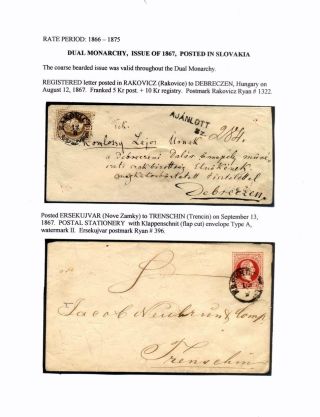 RATE PERIOD: 1866 – 1875
DUAL MONARCHY, ISSUE OF 1867, POSTED IN SLOVAKIA
The coarse bearded issue was valid throughout the Dual Monarchy.
REGISTERED letter posted in RAKOVICZ (Rakovice) to DEBRECZEN, Hungary on
August 12, 1867. Franked 5 Kr post. + 10 Kr registry. Postmark Rakovicz Ryan # 1322.
AJÁNLOTT
284.
Urnak
a Debreczeni
Debreczen
Posted ERSEKUJVAR (Nove Zamky) to TRENSCHIN (Trencin) on September 13,
1867. POSTAL STATIONERY with Klappenschnit (flap cut) envelope Type A,
watermark II. Ersekujvar postmark Ryan # 396.
Jacob Neubrunn & Comp.
Trenschin